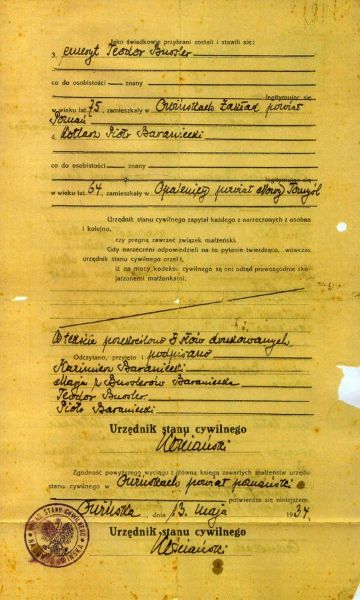 Jako świadkowie przybrani zostali i stawili się:
3. emeryt Teodor Bussler
co do osobistości - znany
legitymując się
w wieku lat 75, zamieszkały w Owińskach Zakład, powiat
Poznań
4. Kotlarz Piotr Baraniecki
co do osobistości - znany
legitymując się
w wieku lat 64, zamieszkały w Opalenicy powiat Nowy Tomyśl
Urzędnik stanu cywilnego zapytał każdego z narzeczonych z osobna
i kolejno,
czy pragną zawrzeć związek małżeński.
Gdy narzeczeni odpowiedzieli na to pytanie twierdząco, wówczas
urzędnik stanu cywilnego orzekł,
iż na mocy kodeksu cywilnego są oni odtąd prawozgodnie sko-
jarzonemi małżonkami.
W tekście przekreślono 5 słów drukowanych
Odczytano, przyjęto i podpisano
Kazimierz Baraniecki
Marja z Busslerów Baraniecka
Teodor Bussler
Piotr Baraniecki
Urzędnik stanu cywilnego
Zgodność powyższego wyciągu z główną księgą zawartych małżeństw urzędu
stanu cywilnego w Owińskach powiat poznański
potwierdza się niniejszem.
Owińska, dnia 13. maja 1934
Urzędnik stanu cywilnego
URZĄD STANU CYWILNEGO